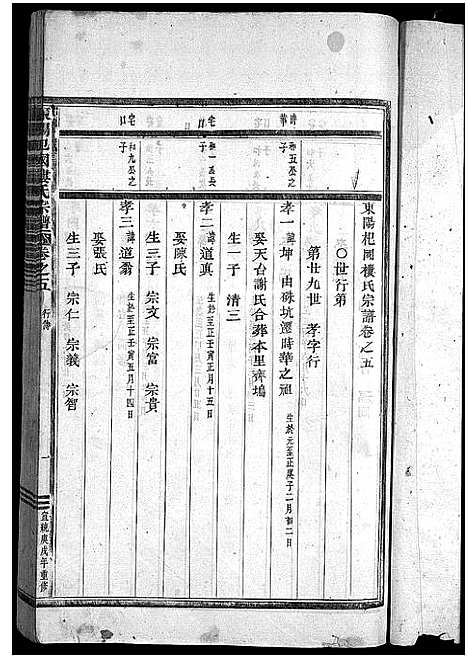 東陽杞國樓氏宗譜卷之五
〇世行第
第廿九世 孝字行
和五丞之子
孝一 諱坤 由硃坑遷時華之祖 生於元至正庚子二月初二日
娶天台謝氏合葬本里齊塢
生一子 清三
和一丞長子
孝二 諱道真 生於至正壬寅正月十五日
娶陳氏
生三子 宗文 宗富 宗貴
和九丞之子
孝三 諱道翁 生於至正壬寅五月十四日
娶張氏
生三子 宗仁 宗義 宗智
東陽杞國樓氏宗譜 卷之五 行第 一 宣統庚戌年重修